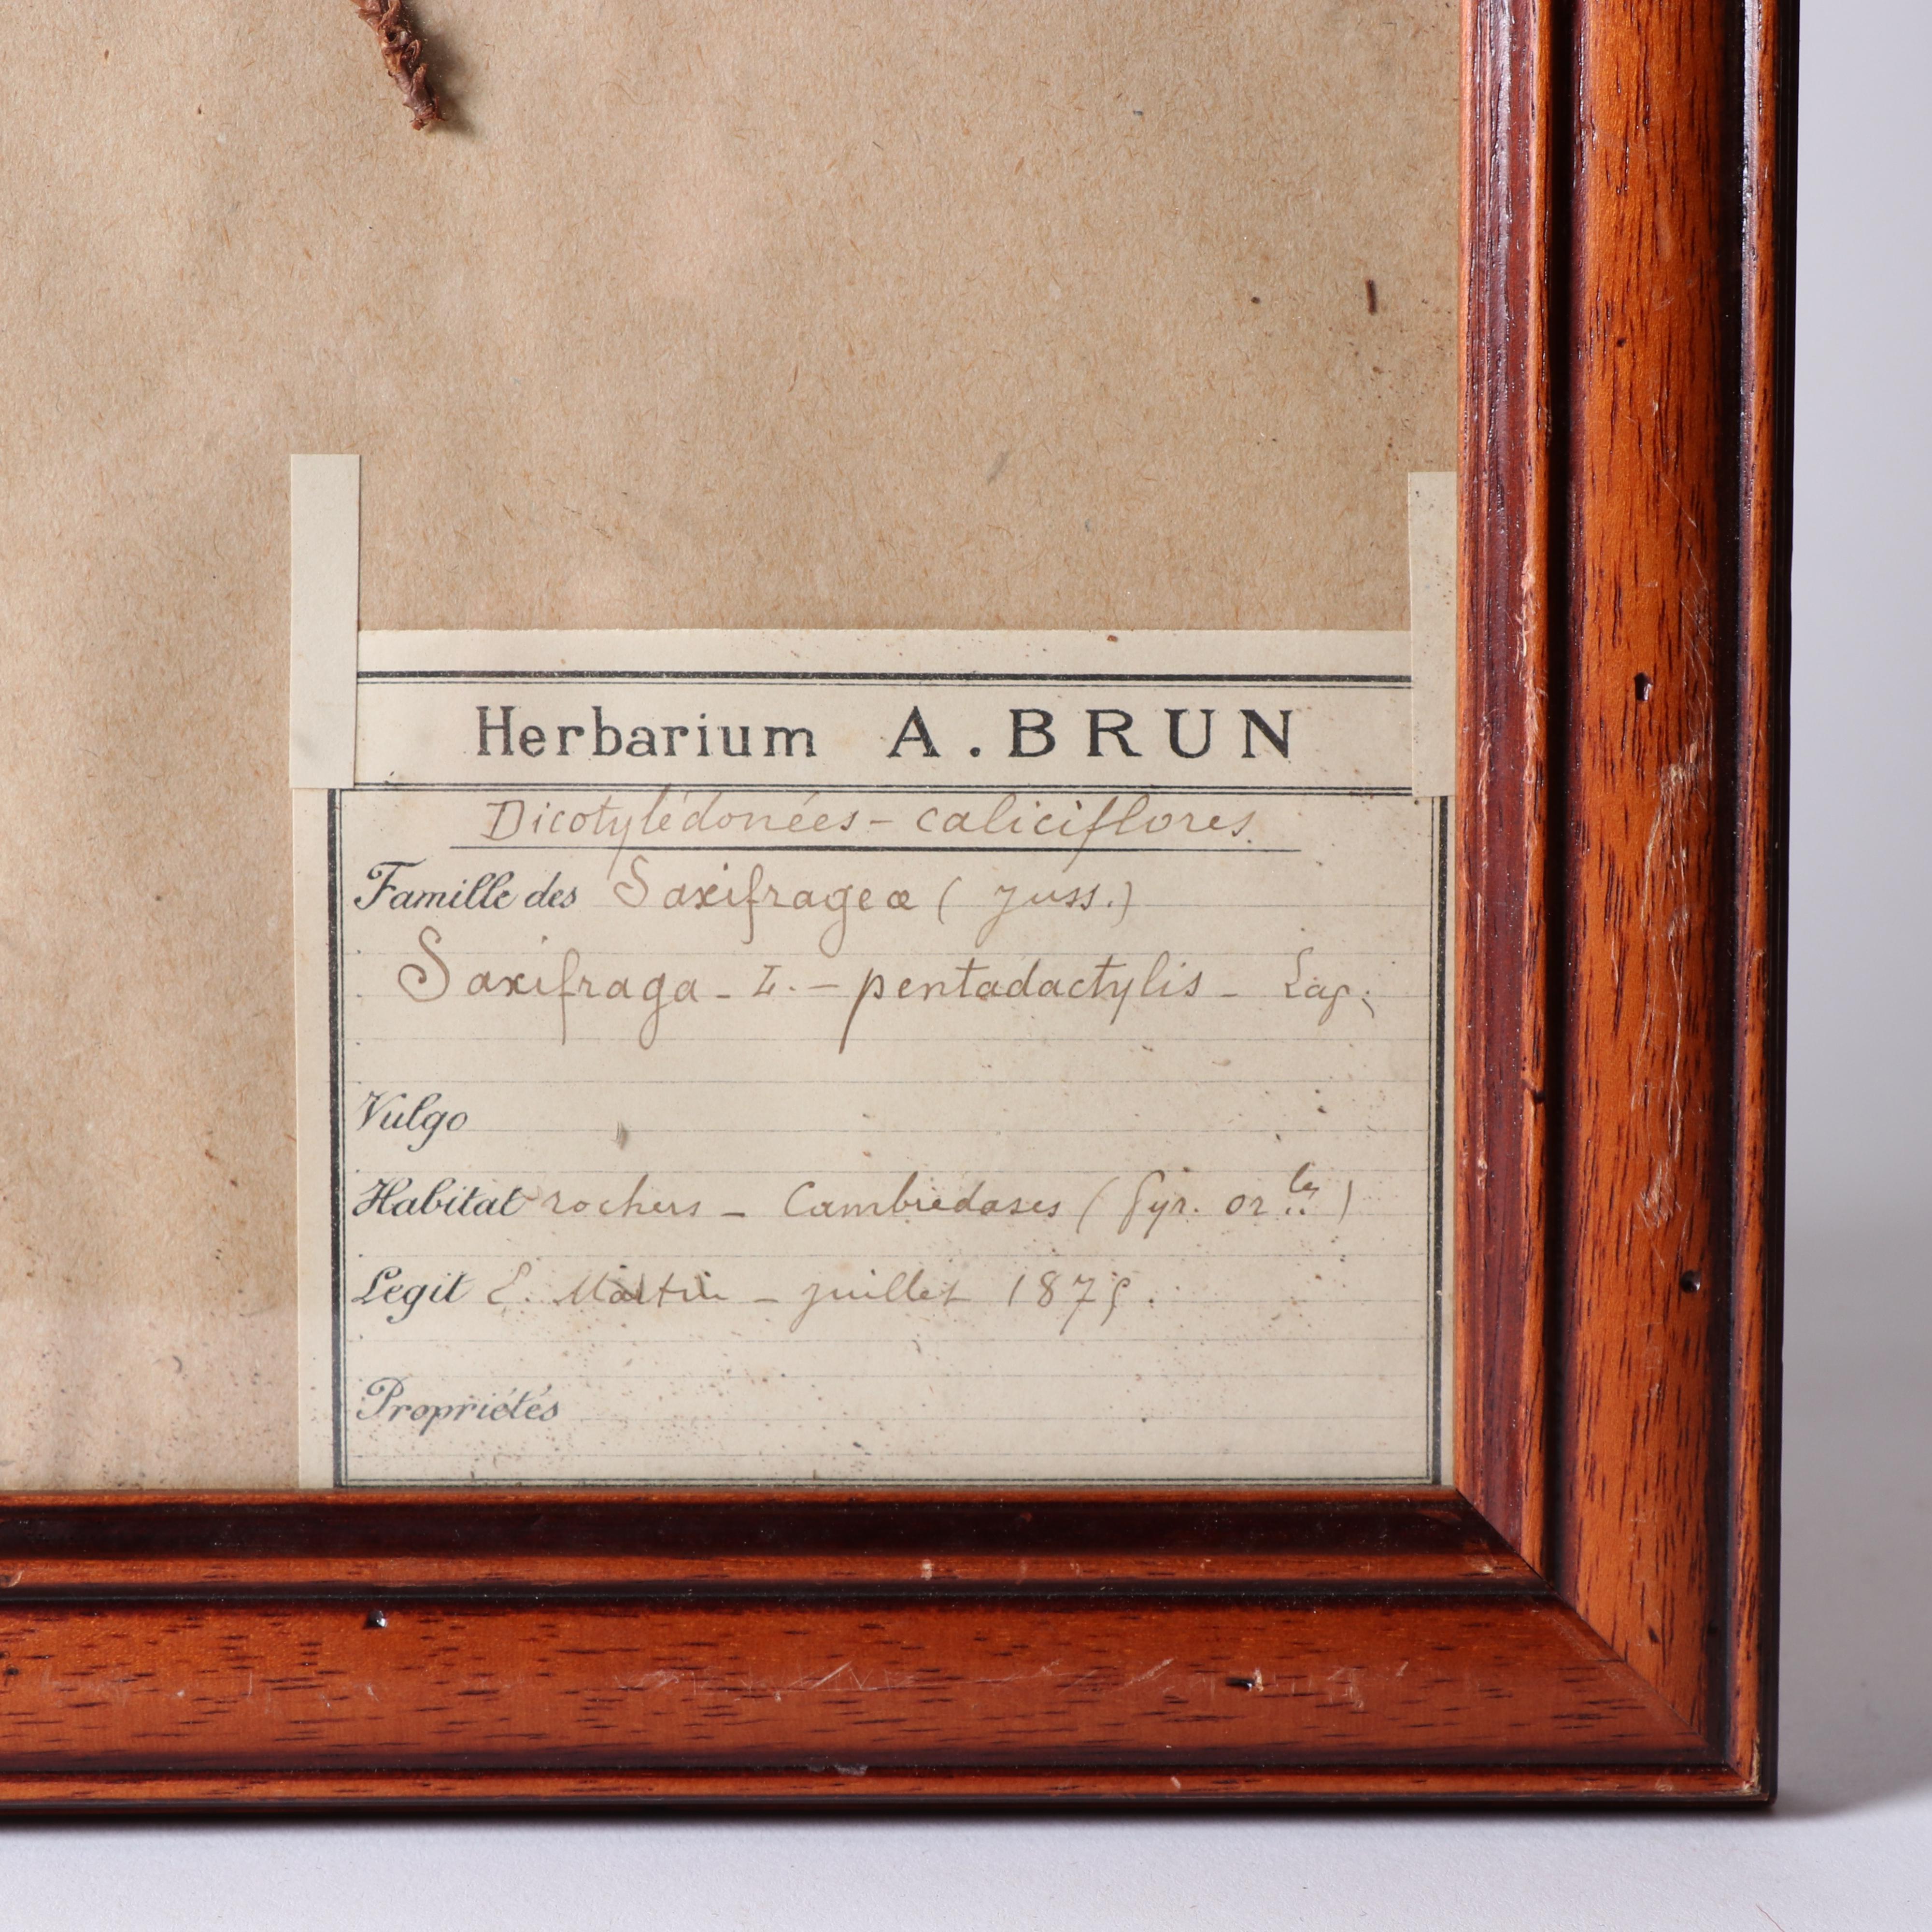 Herbarium A. BRUN
Dicotylédonées - caliciflores
Famille des Saxifrageæ (Juss.)
Saxifraga - L. - pentadactylis - Lap.
Vulgo
Habitat rochers - Cambredases (Pyr. or.les)
Legit E. Martin - juillet 1875.
Propriétés